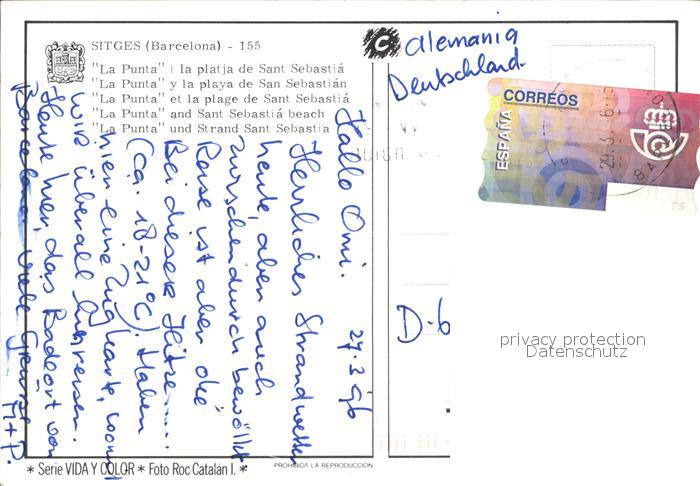 SITGES (Barcelona) - 155
"La Punta" i la platja de Sant Sebastiá
"La Punta" y la playa de San Sebastián
"La Punta" et la plage de Sant Sebastiá
"La Punta" and Sant Sebastiá beach
"La Punta" und Strand Sant Sebastia
C
Alemania
Deutschland.
CORREOS
ESPAÑA
29.3.
24.3.96
Hallo Omi.
Herrliches Strandwetter
heute, aber auch
zwischendurch bewölkt.
Reise ist aber die
Bei dieser Hitze....
(ca. 18-21°C). Haben
hier eine Zugkarte, womit
wir überall hinreisen.
Heute hier, das Badeort von
Barcelona. Viele Grüsse
M+P.
D-6
privacy protection
Datenschutz
* Serie VIDA Y COLOR * Foto Roc Catalán I. *
PROHIBIDA LA REPRODUCCION